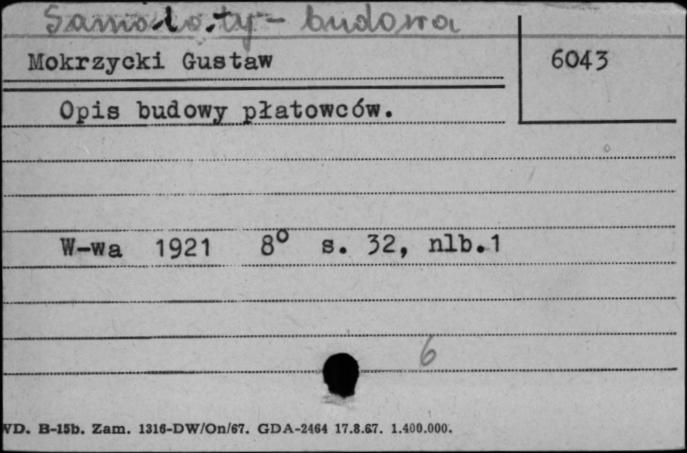 Samoloty - budowa
Mokrzycki Gustaw
6043
Opis budowy płatowców.
W-wa 1921 8° s. 32, nlb.1
6
WD. B-15b. Zam. 1316-DW/On/67. GDA-2464 17.8.67. 1.400.000.